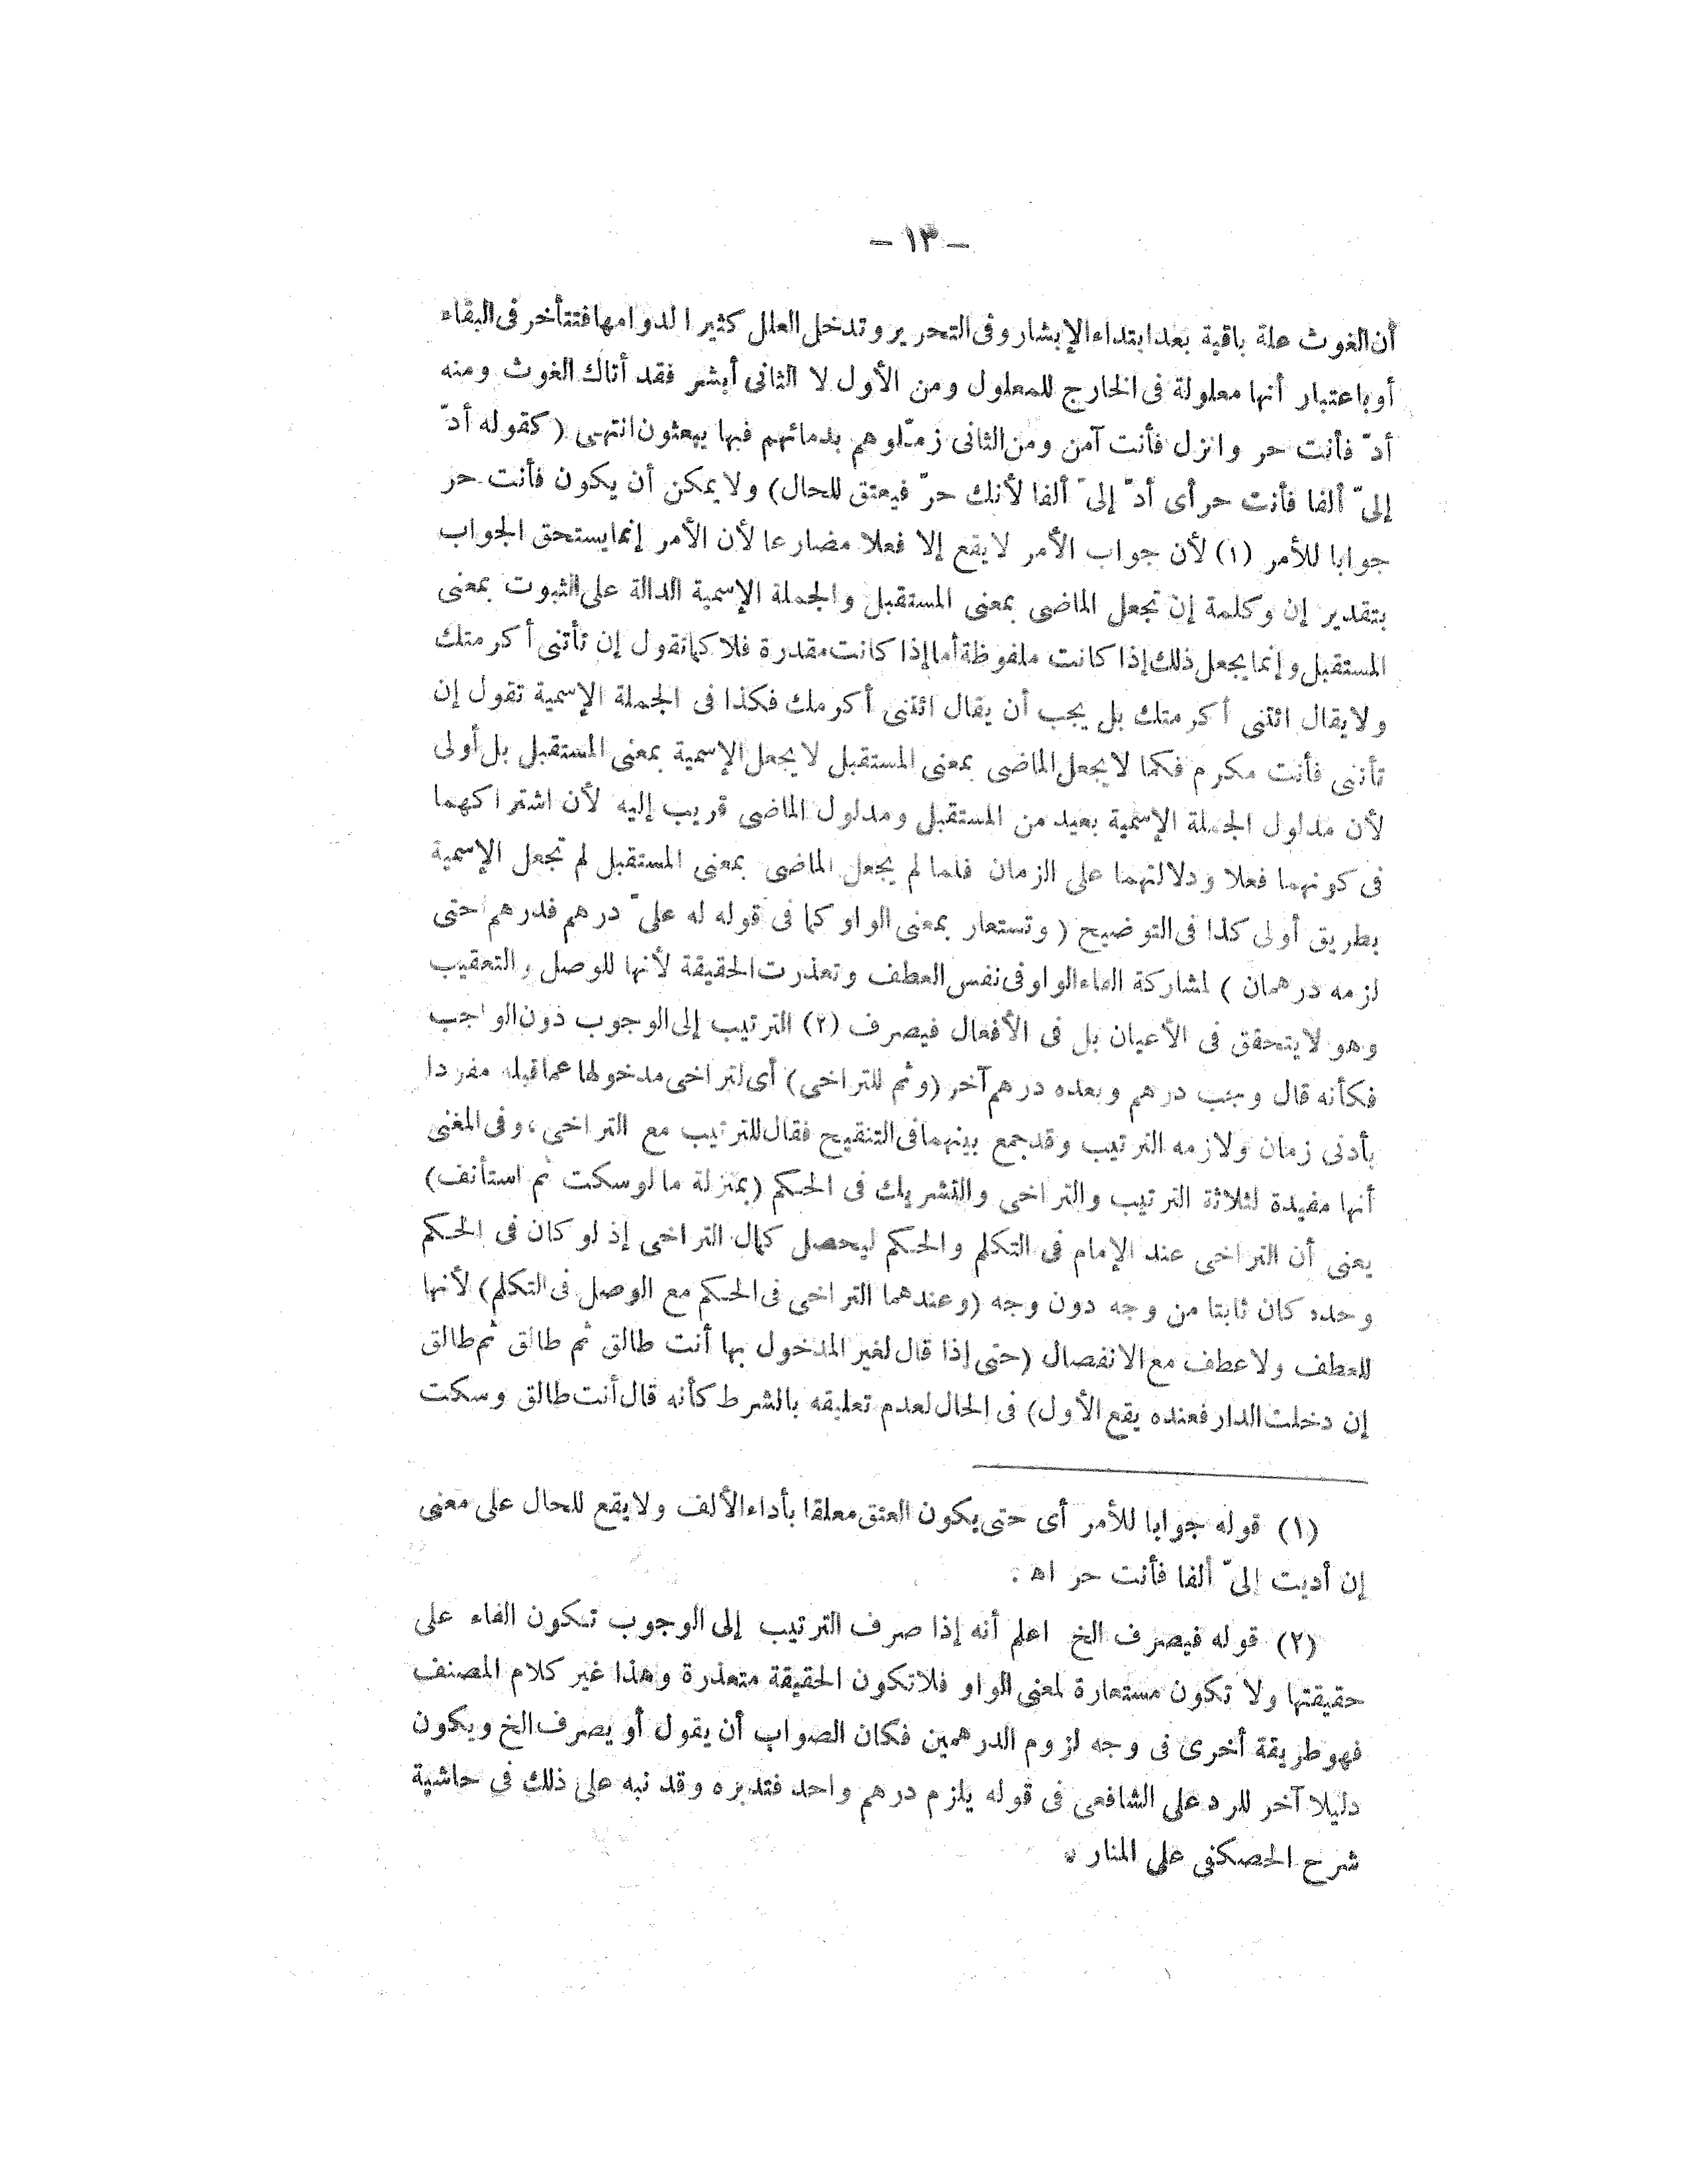 – ١٣ –
أن الغوث علة باقية بعد ابتداء الإبشار وفى التحرير وتدخل العلل كثيرا لدوامها فتتأخر فى البقاء
أو باعتبار أنها معلولة فى الخارج للمعلول ومن الأول لا الثانى أبشر فقد أتاك الغوث ومنه
أدّ فأنت حر وانزل فأنت آمن ومن الثانى زمّلوهم بدمائهم فبها يبعثون انتهى ( كقوله أدّ
إلىّ ألفا فأنت حر أى أدّ إلىّ ألفا لأنك حرّ فيعتق للحال) ولا يمكن أن يكون فأنت حر
جوابا للأمر (١) لأن جواب الأمر لا يقع إلا فعلا مضارعا لأن الأمر إنما يستحق الجواب
بتقدير إن وكلمة إن تجعل الماضى بمعنى المستقبل والجملة الإسمية الدالة على الثبوت بمعنى
المستقبل وإنما يجعل ذلك إذا كانت ملفوظة أما إذا كانت مقدرة فلا كما تقول إن تأتنى أكرمتك
ولا يقال ائتنى أكرمتك بل يجب أن يقال ائتنى أكرمك فكذا فى الجملة الإسمية تقول إن
تأتنى فأنت مكرم فكما لا يجعل الماضى بمعنى المستقبل لا يجعل الإسمية بمعنى المستقبل بل أولى
لأن مدلول الجملة الإسمية بعيد من المستقبل ومدلول الماضى قريب إليه لأن اشتراكهما
فى كونهما فعلا ودلالتهما على الزمان فلما لم يجعل الماضى بمعنى المستقبل لم تجعل الإسمية
بطريق أولى كذا فى التوضيح ( وتستعار بمعنى الواو كما فى قوله له علىّ درهم فدرهم حتى
لزمه درهمان ) لمشاركة الفاء الواو فى نفس العطف وتعذرت الحقيقة لأنها للوصل والتعقيب
وهو لا يتحقق فى الأعيان بل فى الأفعال فيصرف (٢) الترتيب إلى الوجوب دون الواجب
فكأنه قال وجب درهم وبعده درهم آخر (وثم للتراخى) أى لتراخى مدخولها عما قبله مفردا
بأدنى زمان ولازمه الترتيب وقد جمع بينهما فى التنقيح فقال للترتيب مع التراخى، وفى المغنى
أنها مفيدة لثلاثة الترتيب والتراخى والتشريك فى الحكم (بمنزلة ما لو سكت ثم استأنف)
يعنى أن التراخى عند الإمام فى التكلم والحكم ليحصل كمال التراخى إذ لو كان فى الحكم
وحده كان ثابتا من وجه دون وجه (وعندهما التراخى فى الحكم مع الوصل فى التكلم) لأنها
للعطف ولا عطف مع الانفصال (حتى إذا قال لغير المدخول بها أنت طالق ثم طالق ثم طالق
إن دخلت الدار فعنده يقع الأول) فى الحال لعدم تعليقه بالشرط كأنه قال أنت طالق وسكت
(١) قوله جوابا للأمر أى حتى يكون العتق معلقا بأداء الألف ولا يقع للحال على معنى
إن أديت إلىّ ألفا فأنت حر اه .
(٢) قوله فيصرف الخ اعلم أنه إذا صرف الترتيب إلى الوجوب تكون الفاء على
حقيقتها ولا تكون مستعارة لمعنى الواو فلا تكون الحقيقة متعذرة وهذا غير كلام المصنف
فهو طريقة أخرى فى وجه لزوم الدرهمين فكان الصواب أن يقول أو يصرف الخ ويكون
دليلا آخر للرد على الشافعى فى قوله يلزم درهم واحد فتدبره وقد نبه على ذلك فى حاشية
شرح الحصكفى على المنار .